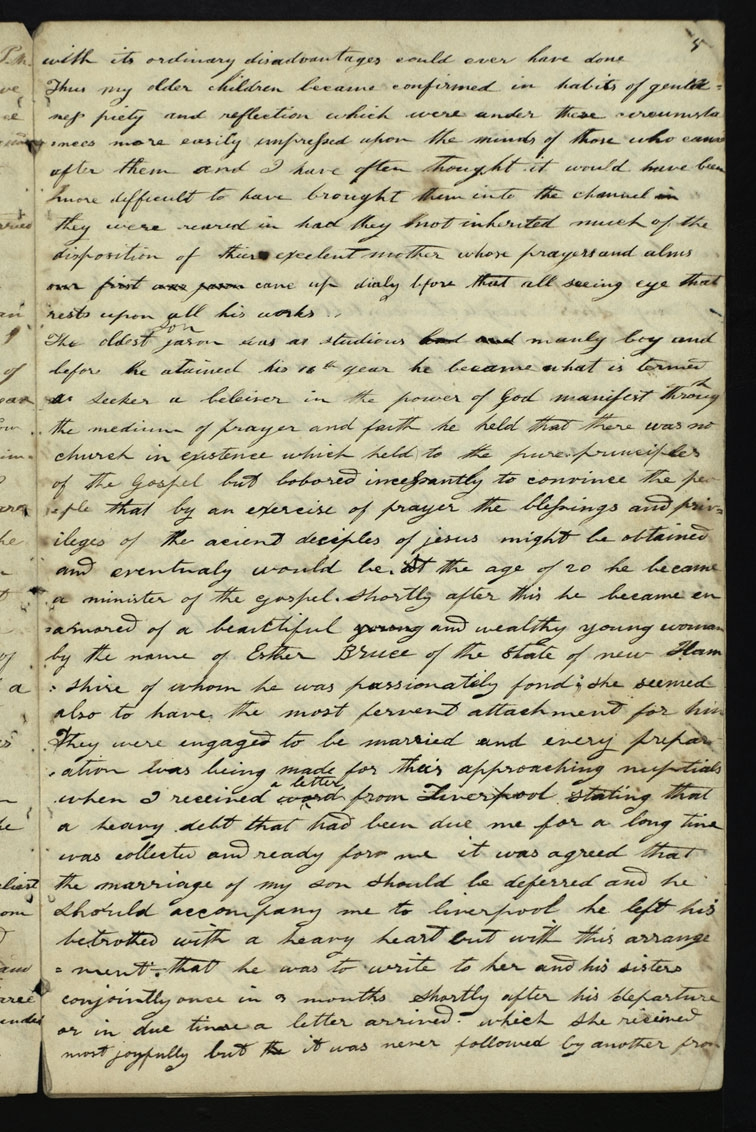 5
with its ordinary disadvantages could ever have done
Thus my older children became confirmed in habits of gentle=
ness piety and reflection which were under these circumsta
nces more easily impressed upon the minds of those who came
after them and I have often thought it would have been
more difficult to have brought them into the channel in
they were reared in had they not inherited much of the
disposition of thier excelent mother whose prayers and alms
our first came up dialy bfore that all seeing eye that
rests upon all his works
The oldest son jason was as studious and manly boy and
before he atained his 16th year he became what is termed
as seeker a beleiver in the power of God manifest through
the medium of prayer and faith he held that there was no
church in existence which held to the pure principles
of the Gospel but labored incessantly to convince the pe
ople that by an exercise of prayer the blessings and priv=
ileges of the acient deciples of jesus might be obtained
and eventualy would be. At the age of 20 he became
a minister of the gospel. shortly after this he became en
=amored of a beautiful young and wealthy young woman
by the name of Esther Bruce of the state of new Ham
=shire of whom he was passionately fond; she seemed
also to have the most fervent attachment for him
They were engaged to be married and every prepar
=ation was being made for their approaching nuptials
when I received a letter word from Liverpool stating that
a heavy debt that had been due me for a long time
was collected and ready for me it was agreed that
the marriage of my son should be deferred and he
should accompany me to liverpool he left his
betrothed with a heavy heart but with this arrange
=ment. that he was to write to her and his sister
conjointly once in 3 months shortly after his departure
or in due time a letter arrived. which she received
most joyfully but the it was never followed by another from